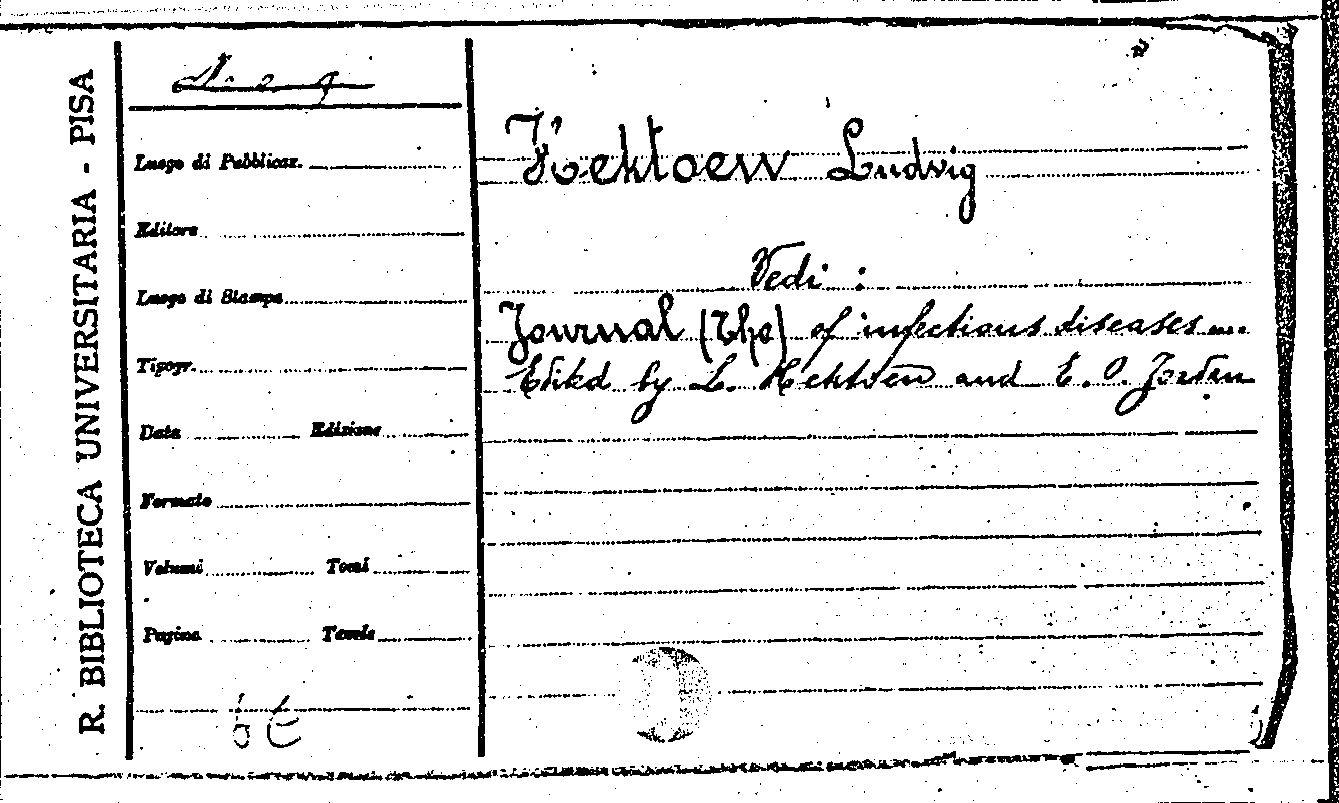 R. BIBLIOTECA UNIVERSITARIA - PISA
Luogo di Pubblicaz.
Editore
Luogo di Stampa
Tipogr.
Data Edizione
Formato
Volumi Tomi
Pagine Tavole
Hektoen Ludvig
Vedi :
Journal (The) of infectious diseases...
Edited by L. Hektoen and E. O. Jordan